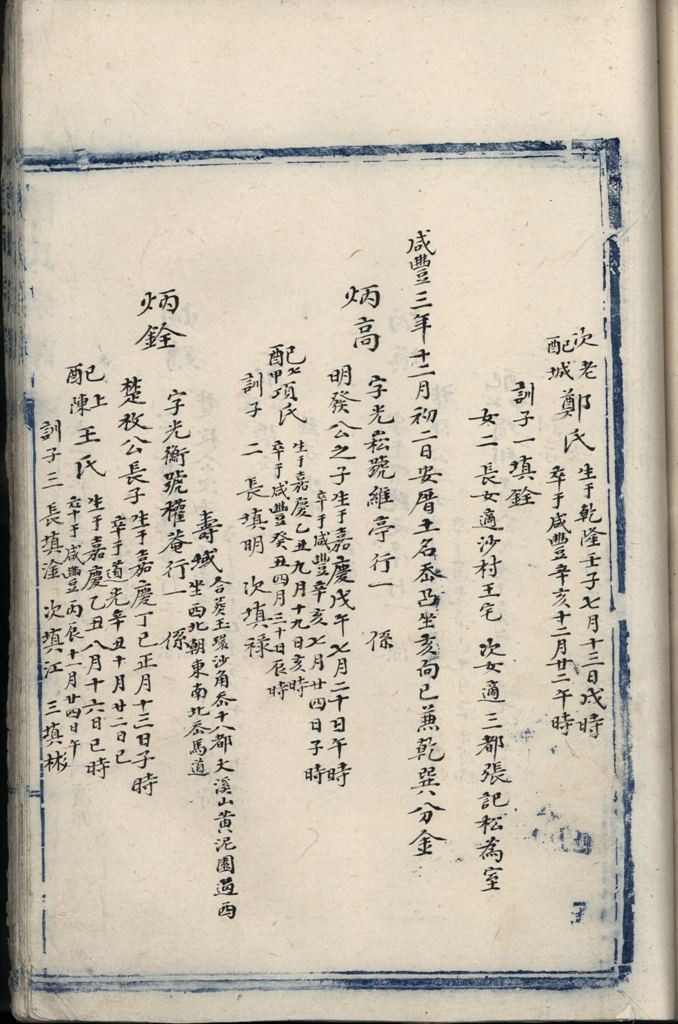 次配老城鄭氏 生于乾隆壬子七月十三日戌時
卒于咸豐辛亥十二月廿二午時
訓子一填銓
女二 長女適沙村王宅 次女適三都張記松為室
咸豐三年十二月初二日安厝土名 坐亥向巳兼乾巽八分金
炳高 字光崧號維亭行一 係
明發公之子 生于嘉慶戊午七月二十日午時
卒于咸豐辛亥七月廿四日子時
配 項氏 生于嘉慶乙丑九月十九日亥時
卒于咸豐癸丑四月三十日辰時
訓子 二 長填明 次填祿
壽域 合葵玉環沙角 十八都大溪山黃泥園 西
坐西北朝東南北 馬道
炳銓 字光衡號權菴行一 係
楚枚公長子 生于嘉慶丁巳正月十三日子時
卒于道光辛丑十月廿二日巳
配 陳上王氏 生于嘉慶乙丑八月十六日巳時
卒于咸豐丙辰十一月廿四日午
訓子三 長填淦 次填江 三填彬